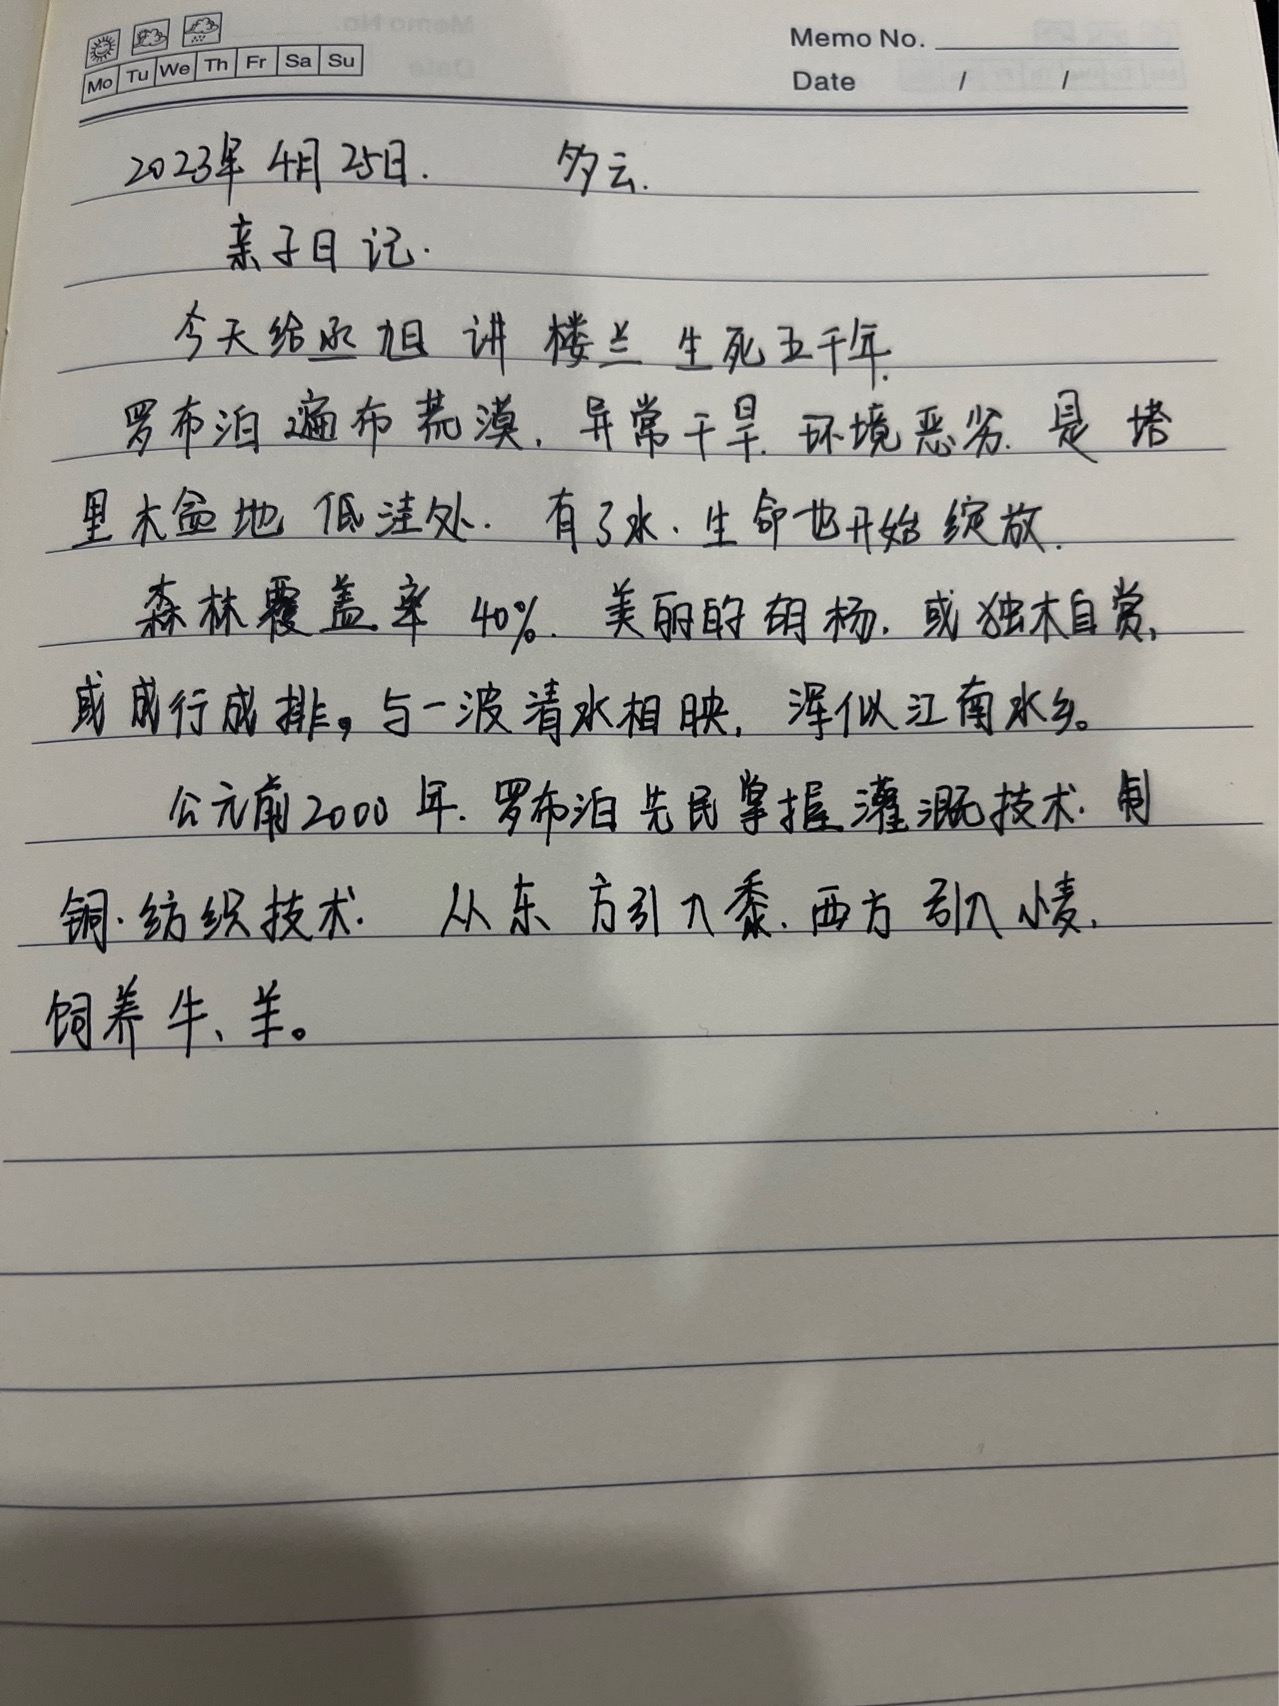 Memo No.
Mo Tu We Th Fr Sa Su
Date / /
2023年4月25日. 多云.
亲子日记.
今天给丞旭讲楼兰生死五千年.
罗布泊遍布荒漠, 异常干旱. 环境恶劣. 是塔
里木盆地低洼处. 有了水. 生命也开始绽放.
森林覆盖率40%. 美丽的胡杨. 或独木自赏,
或成行成排, 与一波清水相映, 浑似江南水乡。
公元前2000年. 罗布泊先民掌握灌溉技术. 制
铜. 纺织技术. 从东方引入黍. 西方引入小麦,
饲养牛、羊。